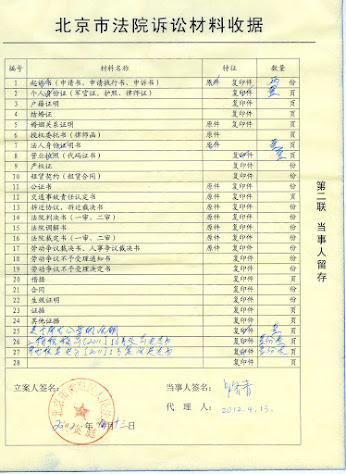 北京市法院诉讼材料收据
编号 材料名称 特征 数量
1 起诉书（申请书、申请执行书、申诉书） 原件 复印件 份
2 个人身份证（军官证、护照、律师证） 复印件 页
3 户籍证明 复印件 页
4 结婚证 复印件 页
5 婚姻关系证明 原件 复印件 页
6 授权委托书（律师函） 原件 页
7 法人身份证明书 原件 页
8 营业执照（代码证书） 复印件 页
9 产权证 复印件 页
10 租赁契约（租赁合同） 复印件 页
11 公证书 原件 复印件 页
12 交通事故责任认定书 原件 复印件 页
13 拆迁协议、拆迁裁决书 原件 复印件 页
14 法院判决书（一审、二审） 原件 复印件 页
15 法院调解书 原件 复印件 页
16 法院裁定书（一审、二审） 原件 复印件 页
17 劳动争议裁决书、人事争议裁决书 原件 复印件 页
18 劳动争议不予受理通知书 复印件 页
19 劳动争议不予受理决定书 复印件 页
20 借据 复印件 页
21 合同 复印件 页
22 生效证明 复印件 页
23 证据 复印件 页
24 其他证据 复印件 页
25 复印件 页
26 [2011] 复印件 页
27 [2011] 复印件 页
28 复印件 页
第二联 当事人留存
立案人签名： 当事人签名：
代理人： 2012.4.13.